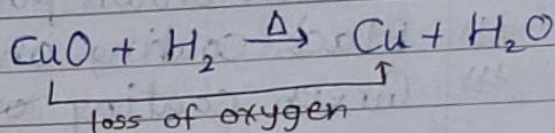 CuO + H₂ →Δ Cu + H₂O
loss of oxygen